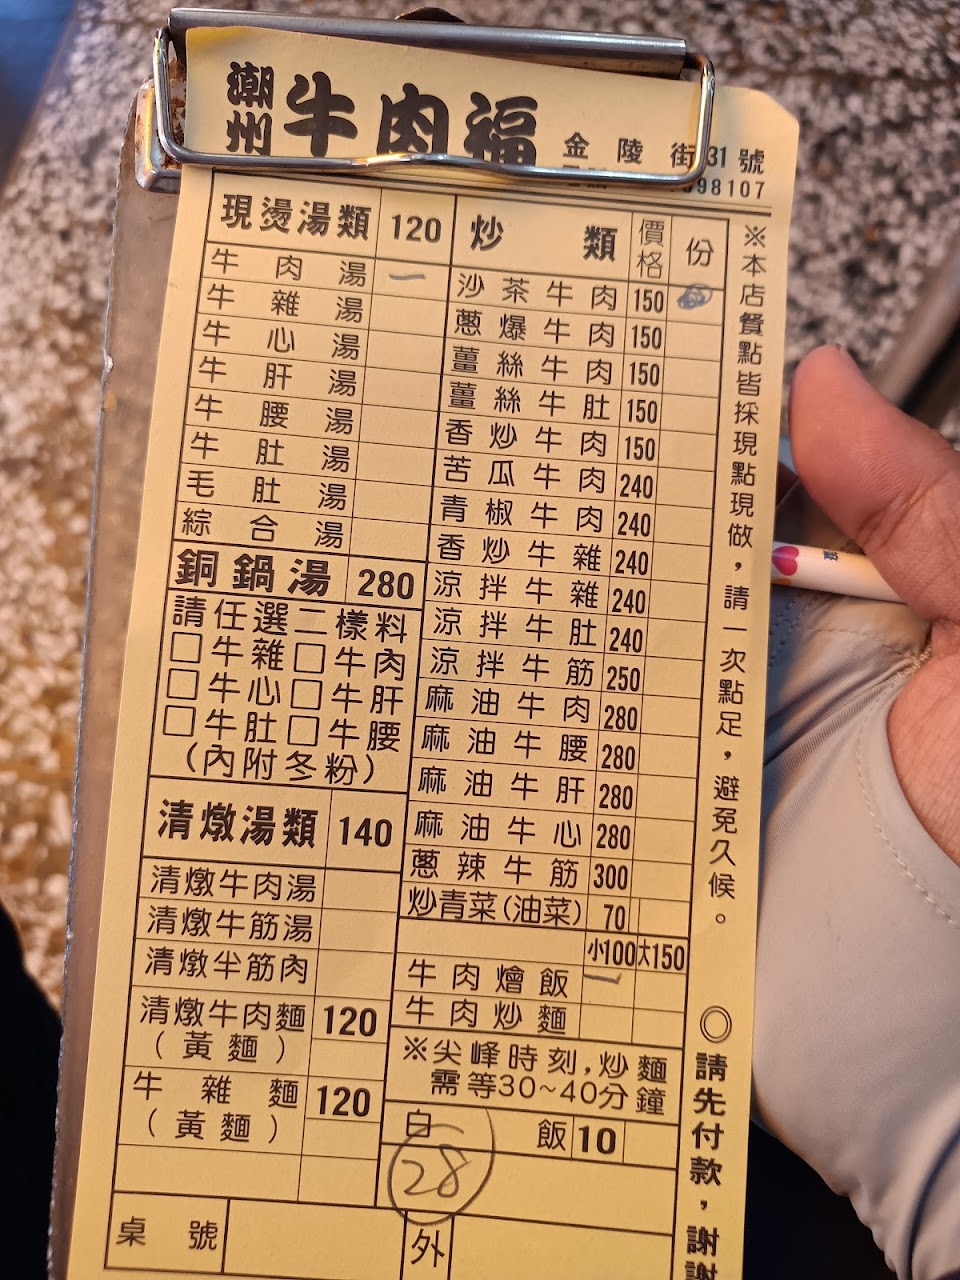 潮州牛肉福 金陵街31號
98107
現燙湯類 120
牛肉湯 一
牛雜湯
牛心湯
牛肝湯
牛腰湯
牛肚湯
毛肚湯
綜合湯
銅鍋湯 280
請任選二樣料
□牛雜□牛肉
□牛心□牛肝
□牛肚□牛腰
(內附冬粉)
清燉湯類 140
清燉牛肉湯
清燉牛筋湯
清燉半筋肉
清燉牛肉麵 120
(黃麵)
牛雜麵 120
(黃麵)
桌號
炒類 價格 份
沙茶牛肉 150
蔥爆牛肉 150
薑絲牛肉 150
薑絲牛肚 150
香炒牛肉 150
苦瓜牛肉 240
青椒牛肉 240
香炒牛雜 240
涼拌牛雜 240
涼拌牛肚 240
涼拌牛筋 250
麻油牛肉 280
麻油牛腰 280
麻油牛肝 280
麻油牛心 280
蔥辣牛筋 300
炒青菜(油菜) 70
小100 大150
牛肉燴飯 一
牛肉炒麵
※尖峰時刻,炒麵
需等30~40分鐘
白飯 10
28
外
※本店餐點皆採現點現做，請一次點足，避免久候。
◎請先付款，謝謝